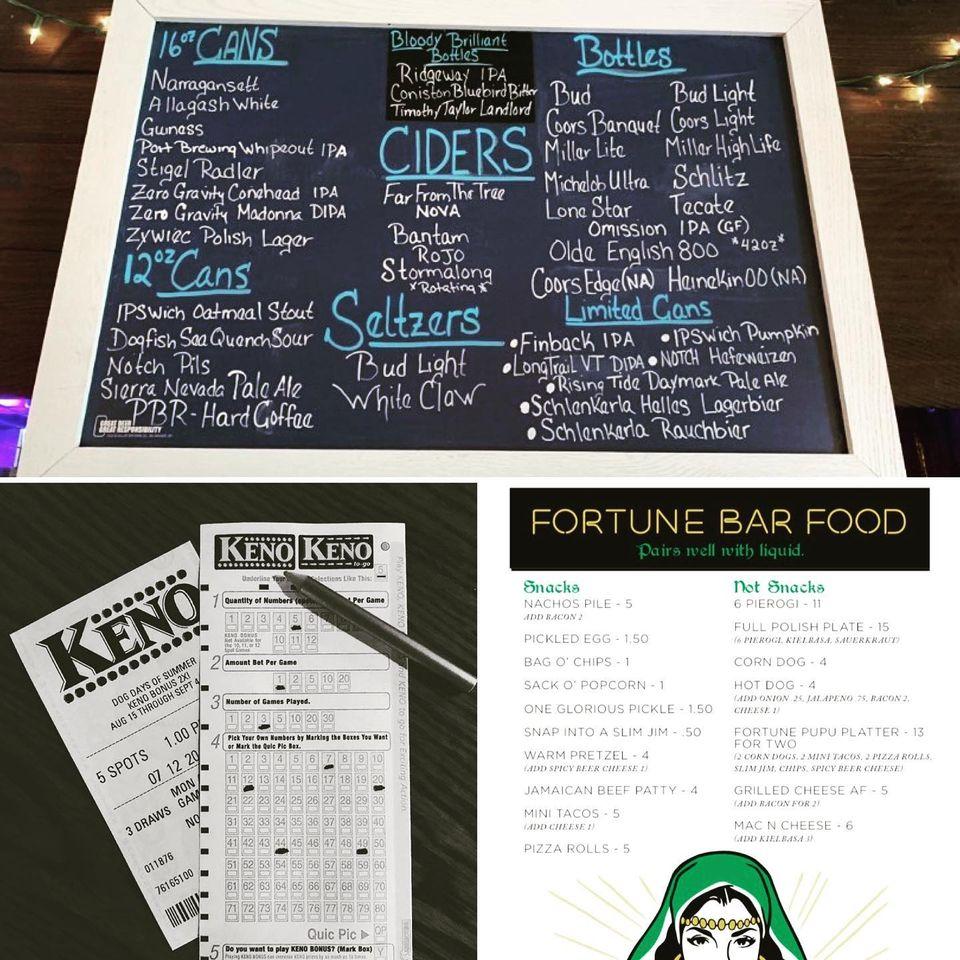 16oz CANS
Narragansett
Allagash White
Guiness
Port Brewing Whipeout IPA
Stigel Radler
Zero Gravity Conehead IPA
Zero Gravity Madonna DIPA
Zywiec Polish Lager
12oz Cans
IPSwich Oatmeal Stout
Dogfish Sea Quench Sour
Notch Pils
Sierra Nevada Pale Ale
PBR-Hard Coffee
GREAT BEER
GREAT RESPONSIBILITY
Bloody Brilliant
Bottles
Ridgeway IPA
Coniston Bluebird Bitter
Timothy Taylor Landlord
CIDERS
Far From The Tree
NOVA
Bantam
ROJO
Stormalong
*Rotating*
Seltzers
Bud Light
White Claw
Bottles
Bud Bud Light
Coors Banquet Coors Light
Miller Lite Miller High Life
Michelob Ultra Schlitz
Lone Star Tecate
Omission IPA (GF)
Olde English 800 *42oz*
Coors Edge (NA) Heinekin 00 (NA)
Limited Cans
•Finback IPA •IPSwich Pumpkin
•Long Trail VT DIPA •NOTCH Hefeweizen
•Rising Tide Daymark Pale Ale
•Schlenkerla Helles Lagerbier
•Schlenkerla Rauchbier
KENO
DOG DAYS OF SUMMER
KENO BONUS 2X!
AUG 15 THROUGH SEPT 4
5 SPOTS 1.00 P
07 12 20
MON
3 DRAWS GAM
NO
011876
76165100
KENO KENO
to-go
Underline Your Selections Like This:
1 Quantity of Numbers Per Game
1 2 3 4 5 6 7 8 9
KENO BONUS
Bet Available for
the 10, 11, or 12
Spot Games
10 11 12
2 Amount Bet Per Game
1 2 5 10 20
3 Number of Games Played.
1 2 3 5 10 20 30
4 Pick Your Own Numbers by Marking the Boxes You Want
or Mark the Quic Pic Box.
1 2 3 4 5 6 7 8 9 10
11 12 13 14 15 16 17 18 19 20
21 22 23 24 25 26 27 28 29 30
31 32 33 34 35 36 37 38 39 40
41 42 43 44 45 46 47 48 49 50
51 52 53 54 55 56 57 58 59 60
61 62 63 64 65 66 67 68 69 70
71 72 73 74 75 76 77 78 79 80
Quic Pic ▶ QP
5 Do you want to play KENO BONUS? (Mark Box) Y
FORTUNE BAR FOOD
Pairs well with liquid.
Snacks
NACHOS PILE - 5
ADD BACON 2
PICKLED EGG - 1.50
BAG O' CHIPS - 1
SACK O' POPCORN - 1
ONE GLORIOUS PICKLE - 1.50
SNAP INTO A SLIM JIM - .50
WARM PRETZEL - 4
(ADD SPICY BEER CHEESE 1)
JAMAICAN BEEF PATTY - 4
MINI TACOS - 5
(ADD CHEESE 1)
PIZZA ROLLS - 5
Not Snacks
6 PIEROGI - 11
FULL POLISH PLATE - 15
(6 PIEROGI, KIELBASA, SAUERKRAUT)
CORN DOG - 4
HOT DOG - 4
(ADD ONION .25, JALAPENO .75, BACON 2,
CHEESE 1)
FORTUNE PUPU PLATTER - 13
FOR TWO
(2 CORN DOGS, 2 MINI TACOS, 2 PIZZA ROLLS,
SLIM JIM, CHIPS, SPICY BEER CHEESE)
GRILLED CHEESE AF - 5
(ADD BACON FOR 2)
MAC N CHEESE - 6
(ADD KIELBASA 3)